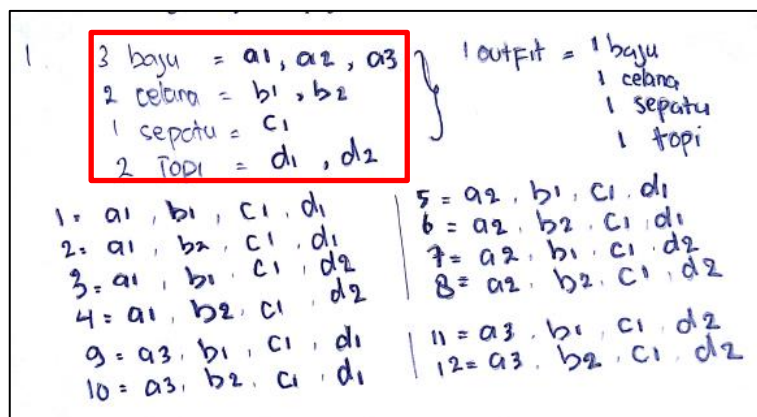 1. 3 baju = a1, a2, a3
2 celana = b1, b2
1 sepatu = c1
2 TOPI = d1, d2
1 outfit = 1 baju
1 celana
1 sepatu
1 topi
1 = a1, b1, c1, d1
2 = a1, b2, c1, d1
3 = a1, b1, c1, d2
4 = a1, b2, c1, d2
5 = a2, b1, c1, d1
6 = a2, b2, c1, d1
7 = a2, b1, c1, d2
8 = a2, b2, c1, d2
9 = a3, b1, c1, d1
10 = a3, b2, c1, d1
11 = a3, b1, c1, d2
12 = a3, b2, c1, d2